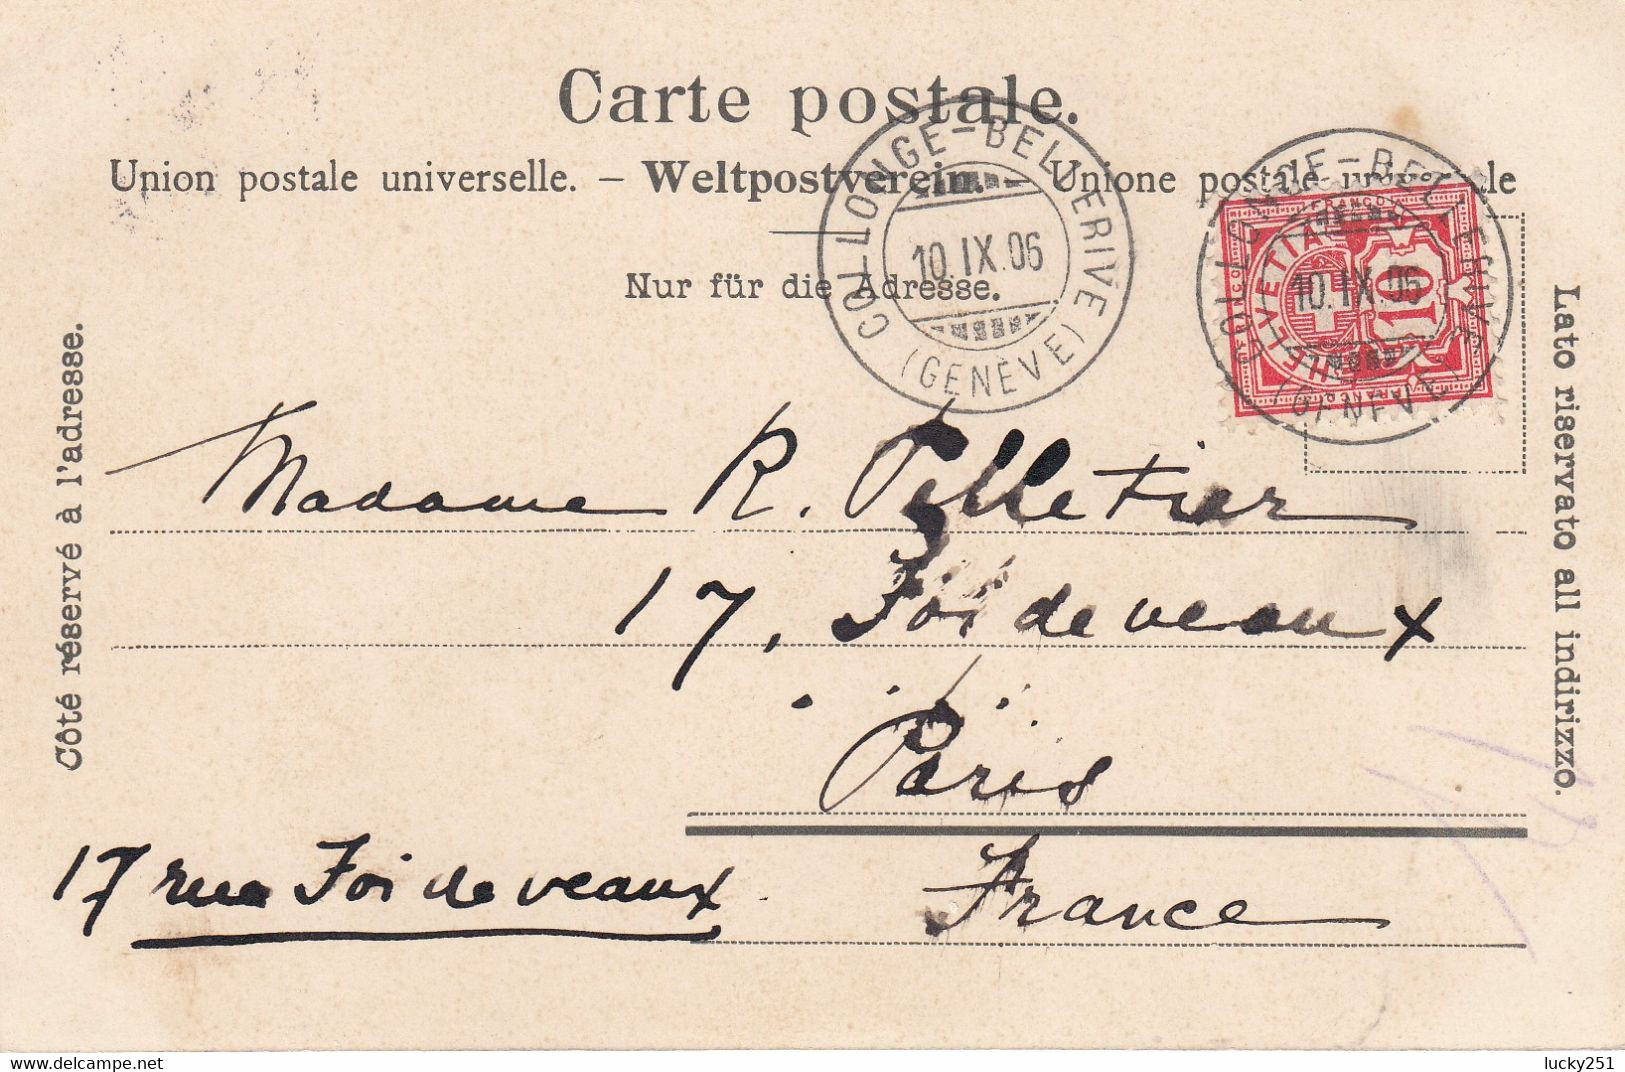 Carte postale.
Union postale universelle. – Weltpostverein. – Unione postale universale
Nur für die Adresse.
COLLONGE-BELLERIVE
10.IX.06
(GENÈVE)
COLLONGE-BELLERIVE
10.IX.06
(GENÈVE)
FRANCO
HELVETIA
10
FRANCO
FRANCO
Côté réservé à l'adresse.
Lato riservato all indirizzo.
Madame R. Pelletier
17, Foi de veaux
Paris
17 rue Foi de veaux
France
delcampe.net
lucky251